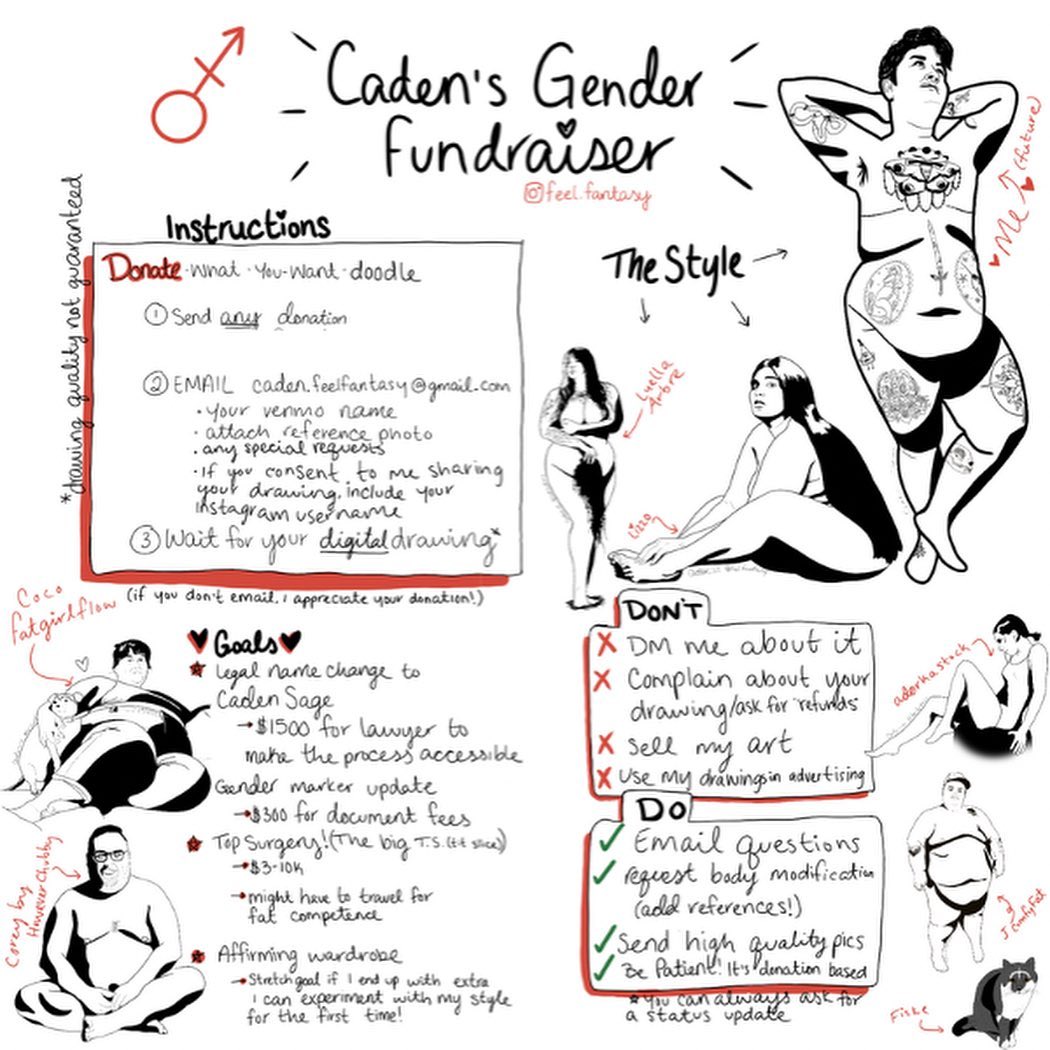 Caden's Gender
Fundraiser
feel.fantasy
*drawing quality not guaranteed
Instructions
Donate-What-You-Want-doodle
① Send any donation
② EMAIL caden.feelfantasy@gmail.com
• Your venmo name
• attach reference photo
• any special requests
• if you consent to me sharing
your drawing, include your
instagram username
③ Wait for your digital drawing*
(if you don't email, i appreciate your donation!)
The Style
Me (future)
Luella
Lizzo
Coco
fatgirlflow
Goals
Legal name change to
Caden Sage
$1500 for lawyer to
make the process accessible
Gender marker update
$300 for document fees
Top Surgery! (The big T.S. (tit slice)
$3-10K
might have to travel for
fat competence
Affirming wardrobe
Stretch goal if I end up with extra
I can experiment with my style
for the first time!
Corey by
HoweverChubby
DON'T
X DM me about it
X Complain about your
drawing/ask for "refunds"
X Sell my art
X Use my drawings in advertising
DO
✓ Email questions
✓ request body modification
(add references!)
✓ Send high quality pics
✓ Be Patient! It's donation based
*You can always ask for
a status update